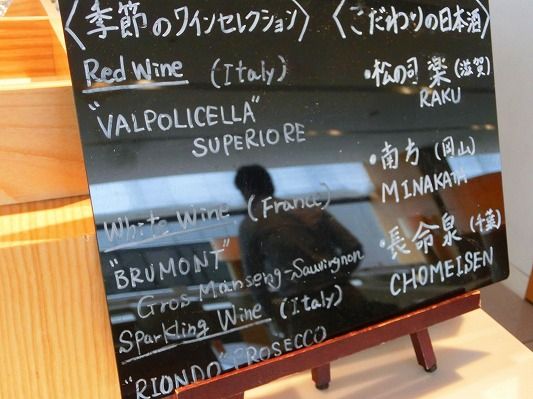 〈季節のワインセレクション〉
Red Wine (Italy)
"VALPOLICELLA"
SUPERIORE
White Wine (France)
"BRUMONT"
Gros Manseng-Sauvignon
Sparkling Wine (Italy)
"RIONDO" PROSECCO
〈こだわりの日本酒〉
・松の司 楽 (滋賀)
RAKU
・南方 (岡山)
MINAKATA
・長命泉 (千葉)
CHOMEISEN